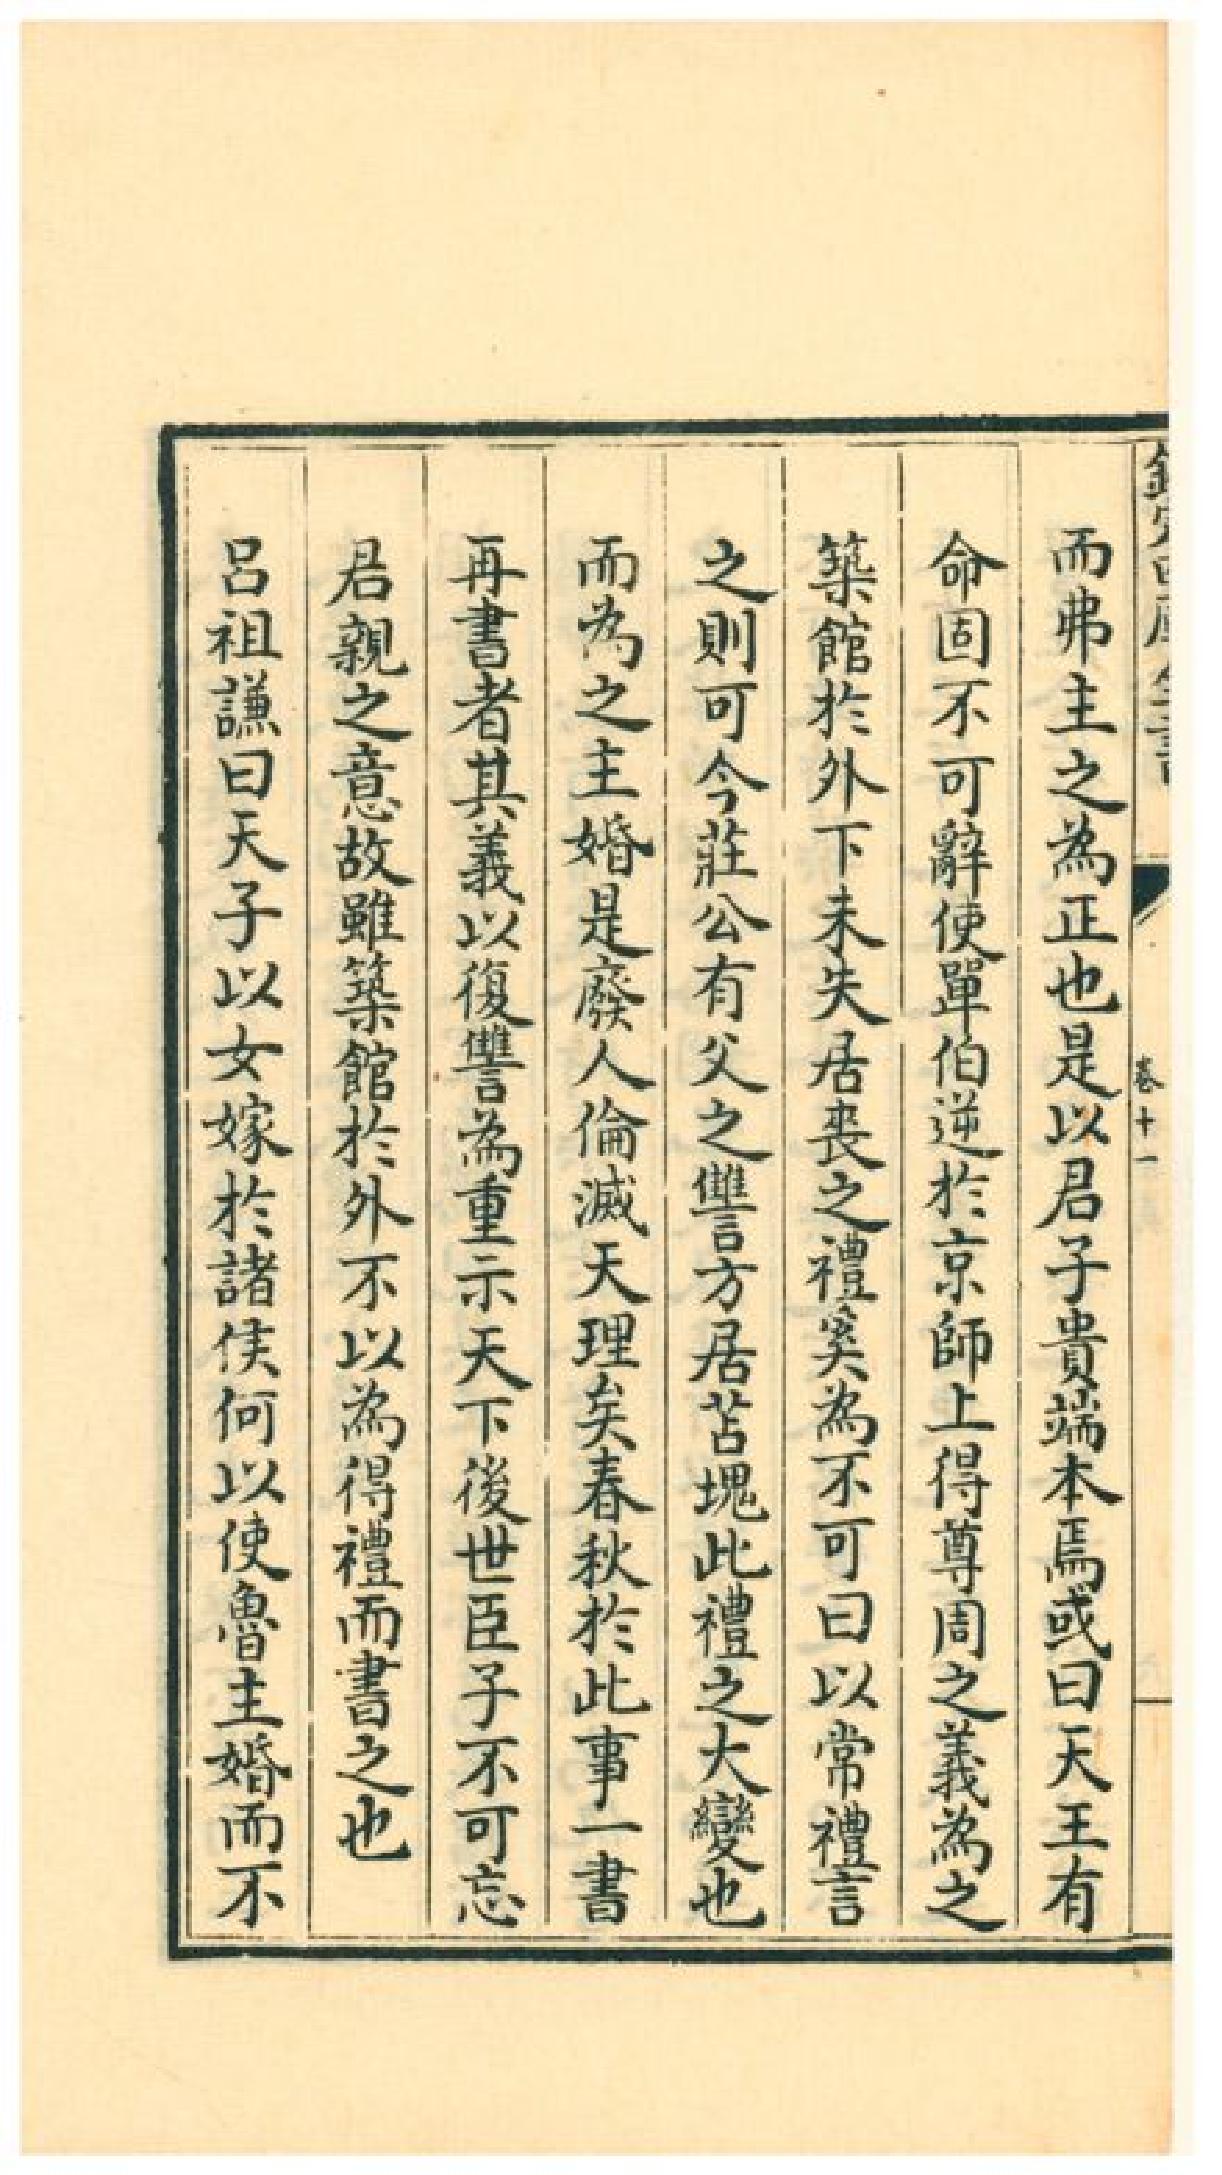 欽定四庫全書
卷十一
而弗主之為正也是以君子貴端本焉或曰天王有
命固不可辭使單伯逆於京師上得尊周之義為之
築館於外下未失居喪之禮奚為不可曰以常禮言
之則可今莊公有父之讐方居苫塊此禮之大變也
而為之主婚是廢人倫滅天理矣春秋於此事一書
再書者其義以復讐為重示天下後世臣子不可忘
君親之意故雖築館於外不以為得禮而書之也
呂祖謙曰天子以女嫁於諸侯何以使魯主婚而不